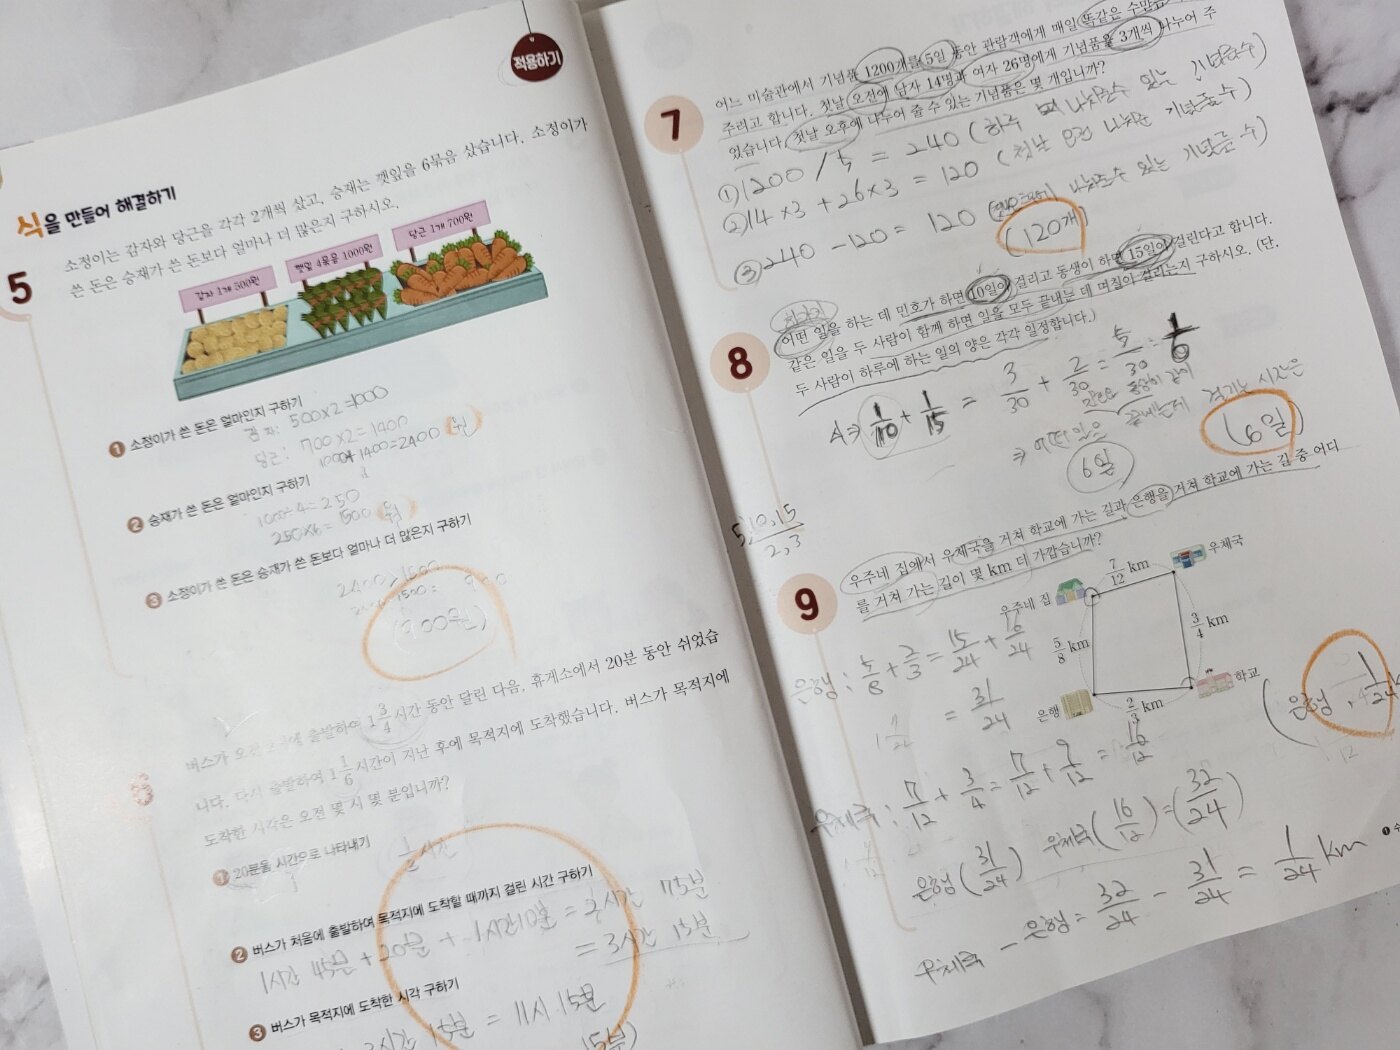 적용하기
식을 만들어 해결하기
5
소정이는 감자와 당근을 각각 2개씩 샀고, 승재는 깻잎을 6묶음 샀습니다. 소정이가
쓴 돈은 승재가 쓴 돈보다 얼마나 더 많은지 구하시오.
감자 1개 500원
깻잎 4묶음 1000원
당근 1개 700원
❶ 소정이가 쓴 돈은 얼마인지 구하기
감자: 500×2=1000
당근: 700×2=1400
1000+1400=2400 (원)
❷ 승재가 쓴 돈은 얼마인지 구하기
1000÷4=250
250×6=1500 (원)
❸ 소정이가 쓴 돈은 승재가 쓴 돈보다 얼마나 더 많은지 구하기
2400>1500
1500= 900
(900원)
6
버스가 오전 출발하여 1 3/4 시간 동안 달린 다음, 휴게소에서 20분 동안 쉬었습
니다. 다시 출발하여 1 1/6 시간이 지난 후에 목적지에 도착했습니다. 버스가 목적지에
도착한 시각은 오전 몇 시 몇 분입니까?
❶ 20분을 시간으로 나타내기
시간
❷ 버스가 처음에 출발하여 목적지에 도착할 때까지 걸린 시간 구하기
1시간 45분 + 20분 + 1시간 10분 = 2시간 75분
= 3시간 15분
❸ 버스가 목적지에 도착한 시각 구하기
3시간 15분 = 11시 15분
15분)
7
어느 미술관에서 기념품 1200개를 5일 동안 관람객에게 매일 똑같은 수만큼
주려고 합니다. 첫날 오전에 남자 14명과 여자 26명에게 기념품을 3개씩 나누어 주
었습니다. 첫날 오후에 나누어 줄 수 있는 기념품은 몇 개입니까?
① 1200 / 5 = 240 (하루 나눠줄 수 있는 기념품 수)
② 14×3 + 26×3 = 120 (첫날 오전 나눠준 기념품 수)
③ 240 - 120 = 120 나눠줄 수 있는 기념품 수)
(120개)
8
어떤 일을 하는 데 민호가 하면 10일이 걸리고 동생이 하면 15일이 걸린다고 합니다.
같은 일을 두 사람이 함께 하면 일을 모두 끝내는 데 며칠이 걸리는지 구하시오. (단,
두 사람이 하루에 하는 일의 양은 각각 일정합니다.)
A⇒ 1/10 + 1/15 = 3/30 + 2/30 = 5/30 = 1/6
⇒ 어떤 일을 끝내는데 걸리는 시간은
6일
(6일)
5)10,15
2,3
9
우주네 집에서 우체국을 거쳐 학교에 가는 길과 은행을 거쳐 학교에 가는 길 중 어디
를 거쳐 가는 길이 몇 km 더 가깝습니까?
우주네 집
7/12 km
우체국
5/8 km
3/4 km
은행
2/3 km
학교
은행: 5/8 + 2/3 = 15/24 + 16/24
= 31/24
우체국: 7/12 + 3/4 = 7/12 + 9/12 = 16/12
은행(31/24) 우체국(16/12)=(32/24)
우체국 - 은행 = 32/24 - 31/24 = 1/24 km
(은행, 1/24